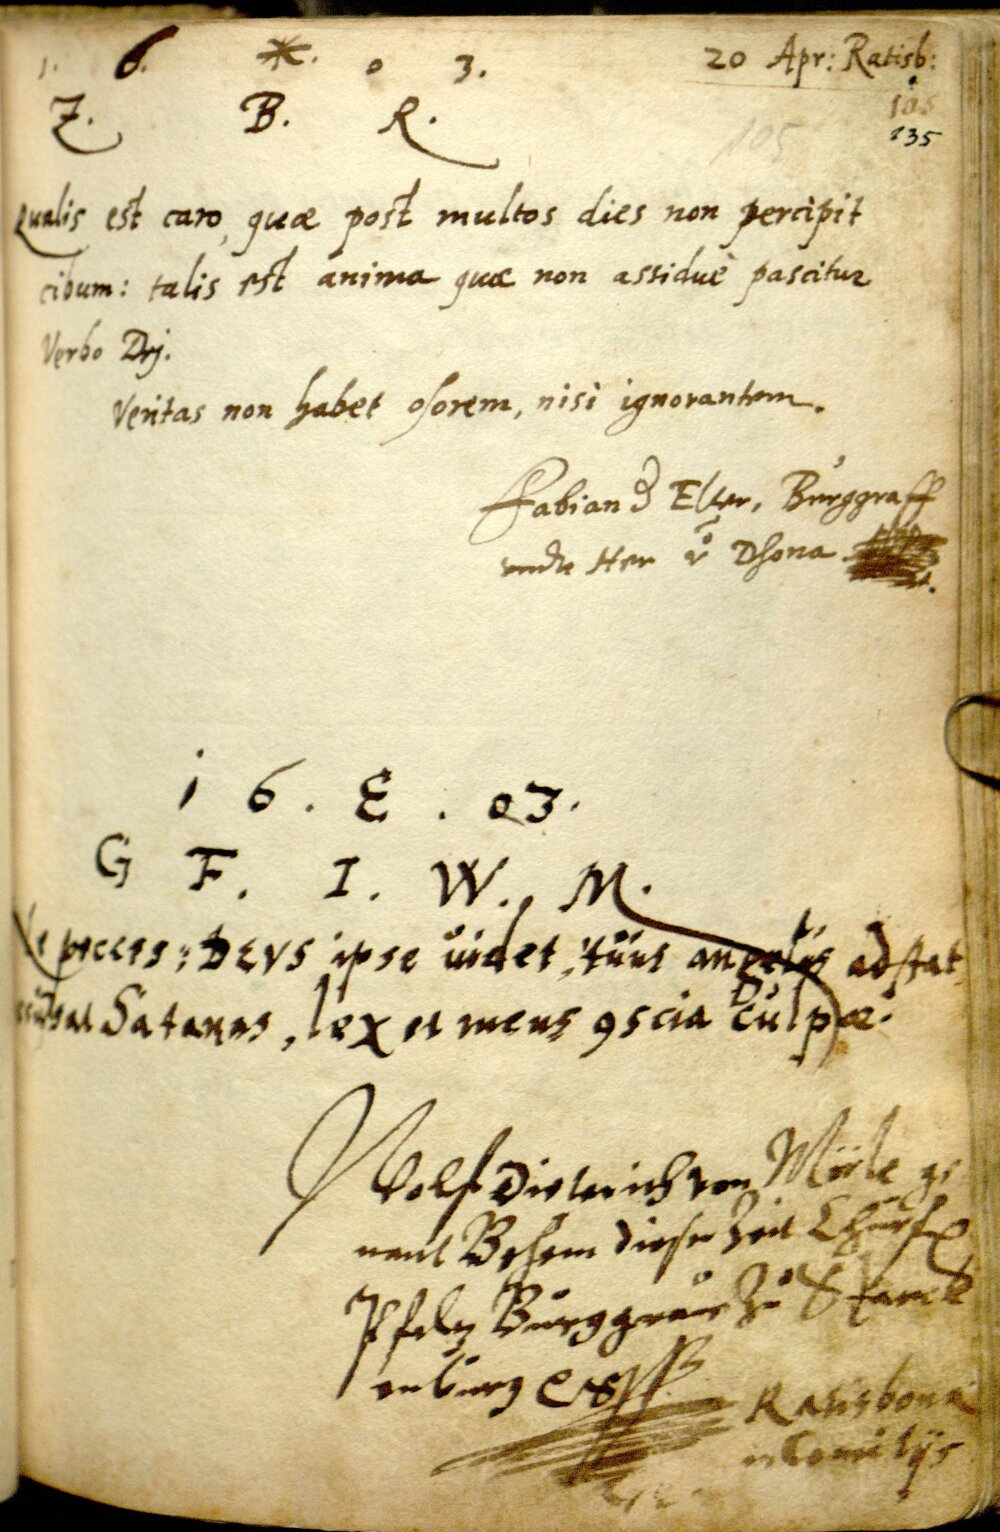 1. 6. * . 0 3. 20 Apr: Ratisb:
Z. B. R. 105
105 135
Qualis est caro, quæ post multos dies non percipit
cibum: talis est anima quæ non assiduè pascitur
Verbo Dej.
Veritas non habet osorem, nisi ignorantem.
Fabian d Elter, Burggraff
undt Her v Dhona
1 6 . E . 03.
G F. I. W. M.
Ne pecces; DEVS ipse uidet, tuus angelus adstat
Satanas, lex et mens 9scia culpæ.
Wolf Dieterich von Müle ge
nant Behem dieser Zeit Churf
Pfaltz Burggraue zu Starck
enburg
Ratisbonæ
in Comitijs